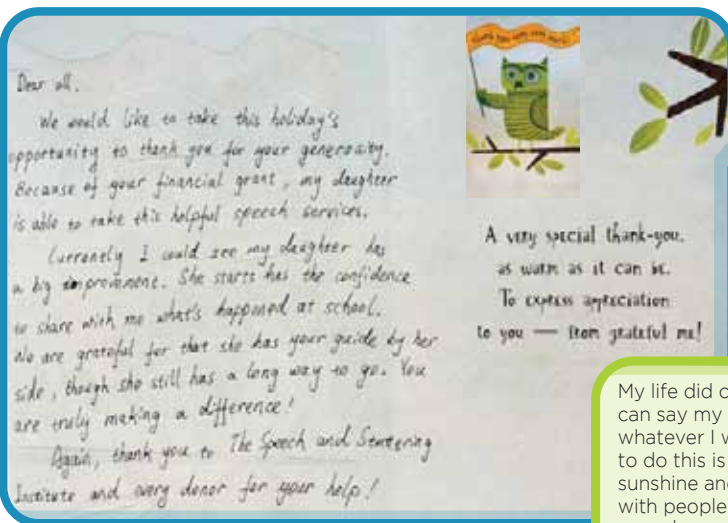 Dear all,
We would like to take this holiday's
opportunity to thank you for your generosity.
Because of your financial grant, my daughter
is able to take this helpful speech services.
Currently I could see my daughter has
a big improvement. She starts has the confidence
to share with me what's happened at school.
We are grateful for that she has your guide by her
side, though she still has a long way to go. You
are truly making a difference!
Again, thank you to The Speech and Stuttering
Institute and every donor for your help!
thank you very very much
A very special thank-you,
as warm as it can be.
To express appreciation
to you — from grateful me!
My life did
can say my
whatever I
to do this is
sunshine and
with people